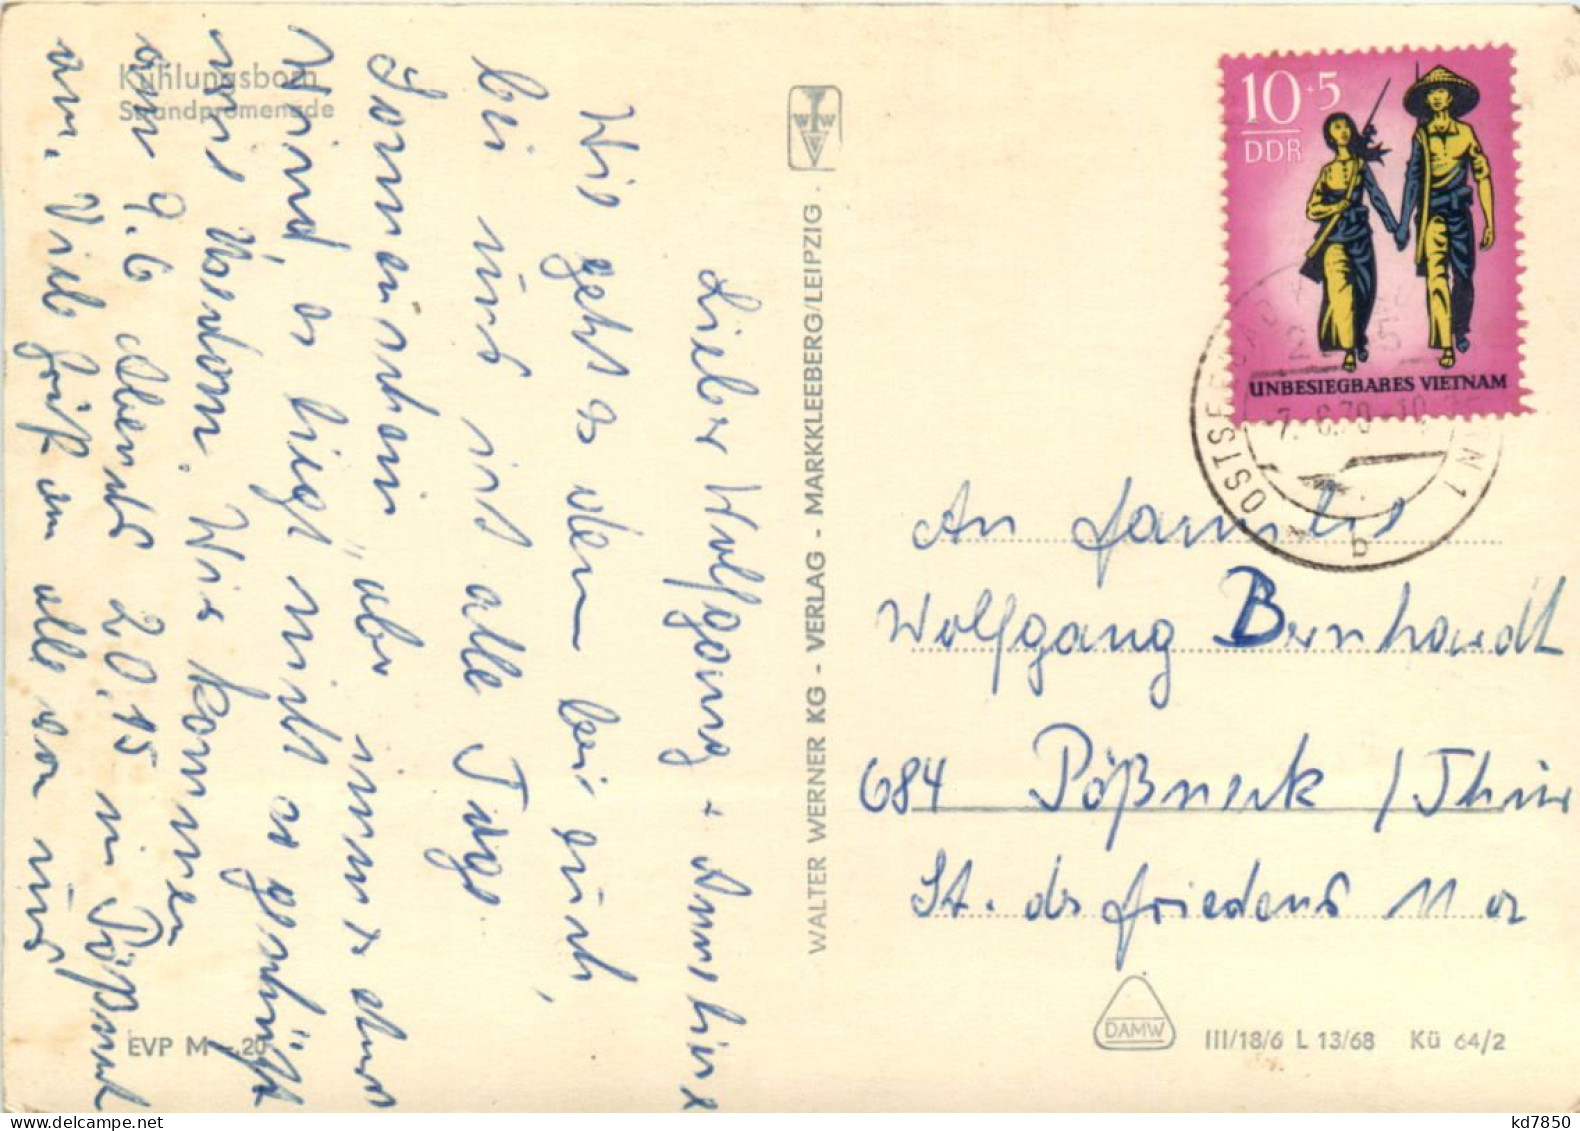 Kühlungsborn
Strandpromenade
Lieber Wolfgang + Annelies
Wie geht es denn bei euch,
bei uns ist alle Tage
Sonnenschein, aber immer etwas
Wind, es liegt nicht so geschützt
wie Usedom. Wir kommen
am 9.6 Abends 20.15 in Pößneck
an. Viele Grüße an alle von uns
WALTER WERNER KG - VERLAG - MARKKLEEBERG/LEIPZIG
WWV
10+5
DDR
UNBESIEGBARES VIETNAM
OSTSEEBAD
7.6.70-10
b
An Familie
Wolfgang Bernhardt
684 Pößneck / Thür
St. des Friedens 11 a
EVP M -.20
DAMW
III/18/6 L 13/68 Kü 64/2
kd7850